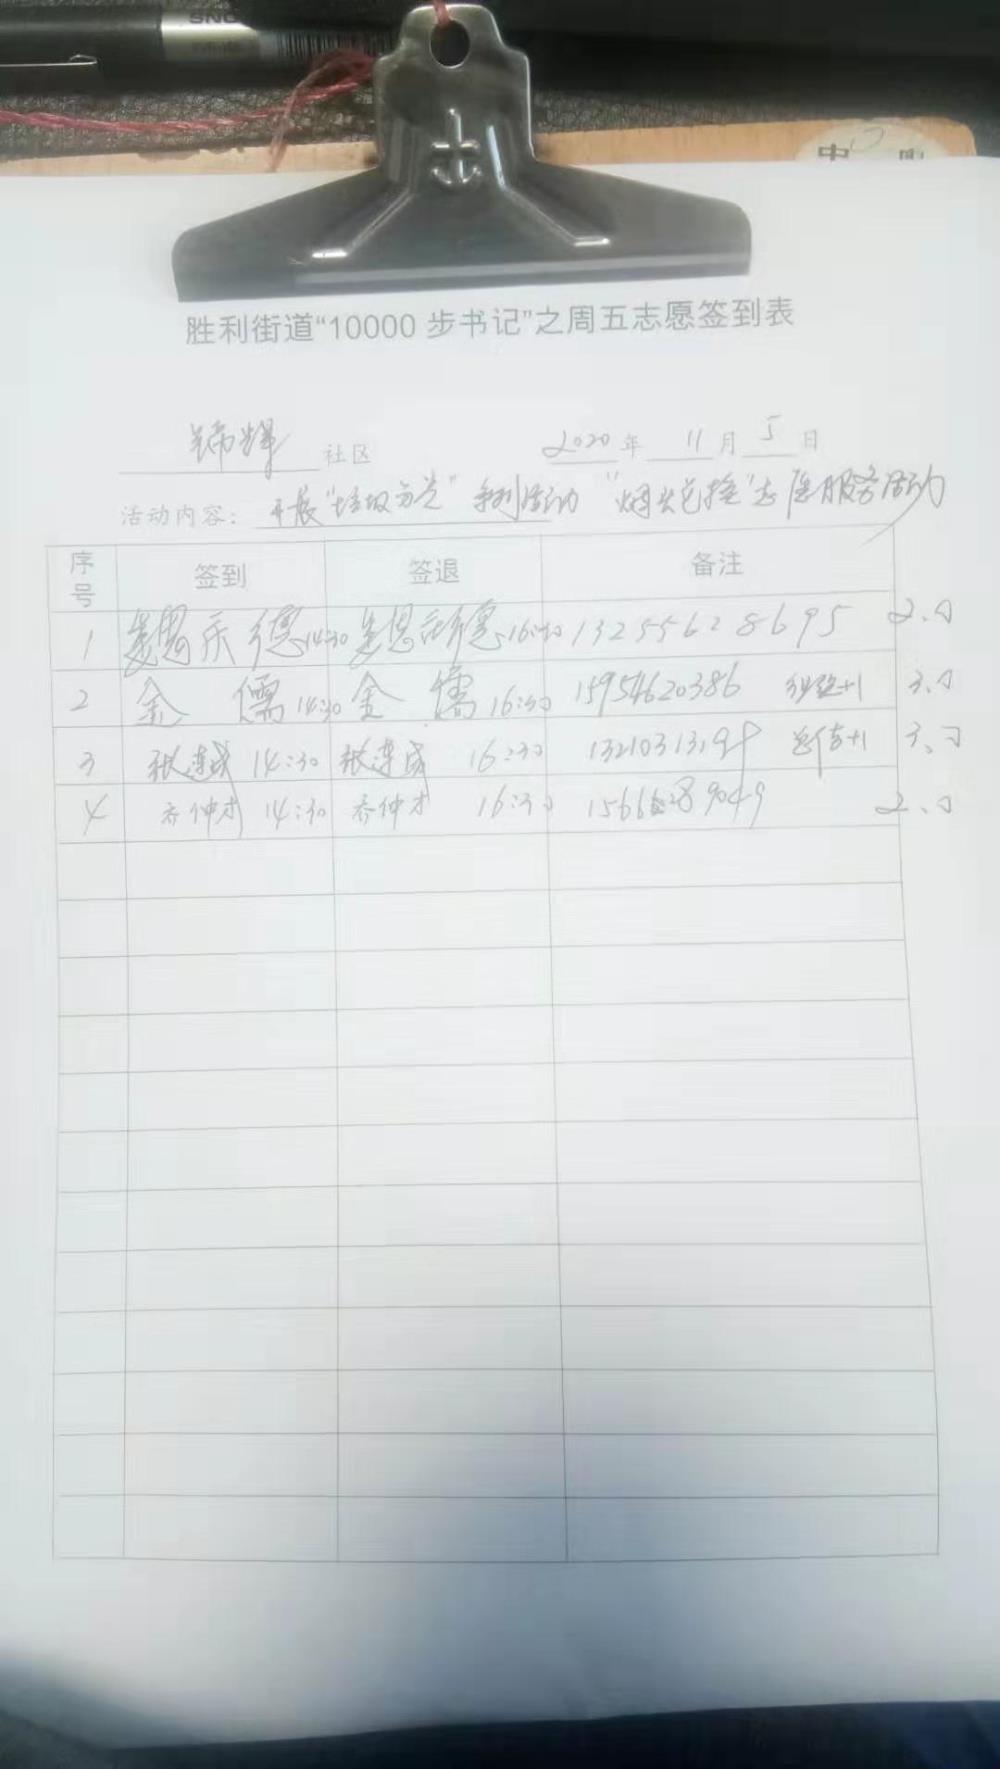 SNO
胜利街道“10000 步书记”之周五志愿签到表
锦辉 社区 2020 年 11 月 5 日
活动内容： 开展“垃圾分类” 系列活动 “烟头兑换”志愿服务活动
序号 签到 签退 备注
1 庆德 14:30 德 16:30 13255628695 2.0
2 金儒 14:30 金儒 16:30 15954620386 +1 3.0
3 张连成 14:30 张连成 16:30 +1 3.0
4 乔仲才 14:30 乔仲才 16:30 2.0